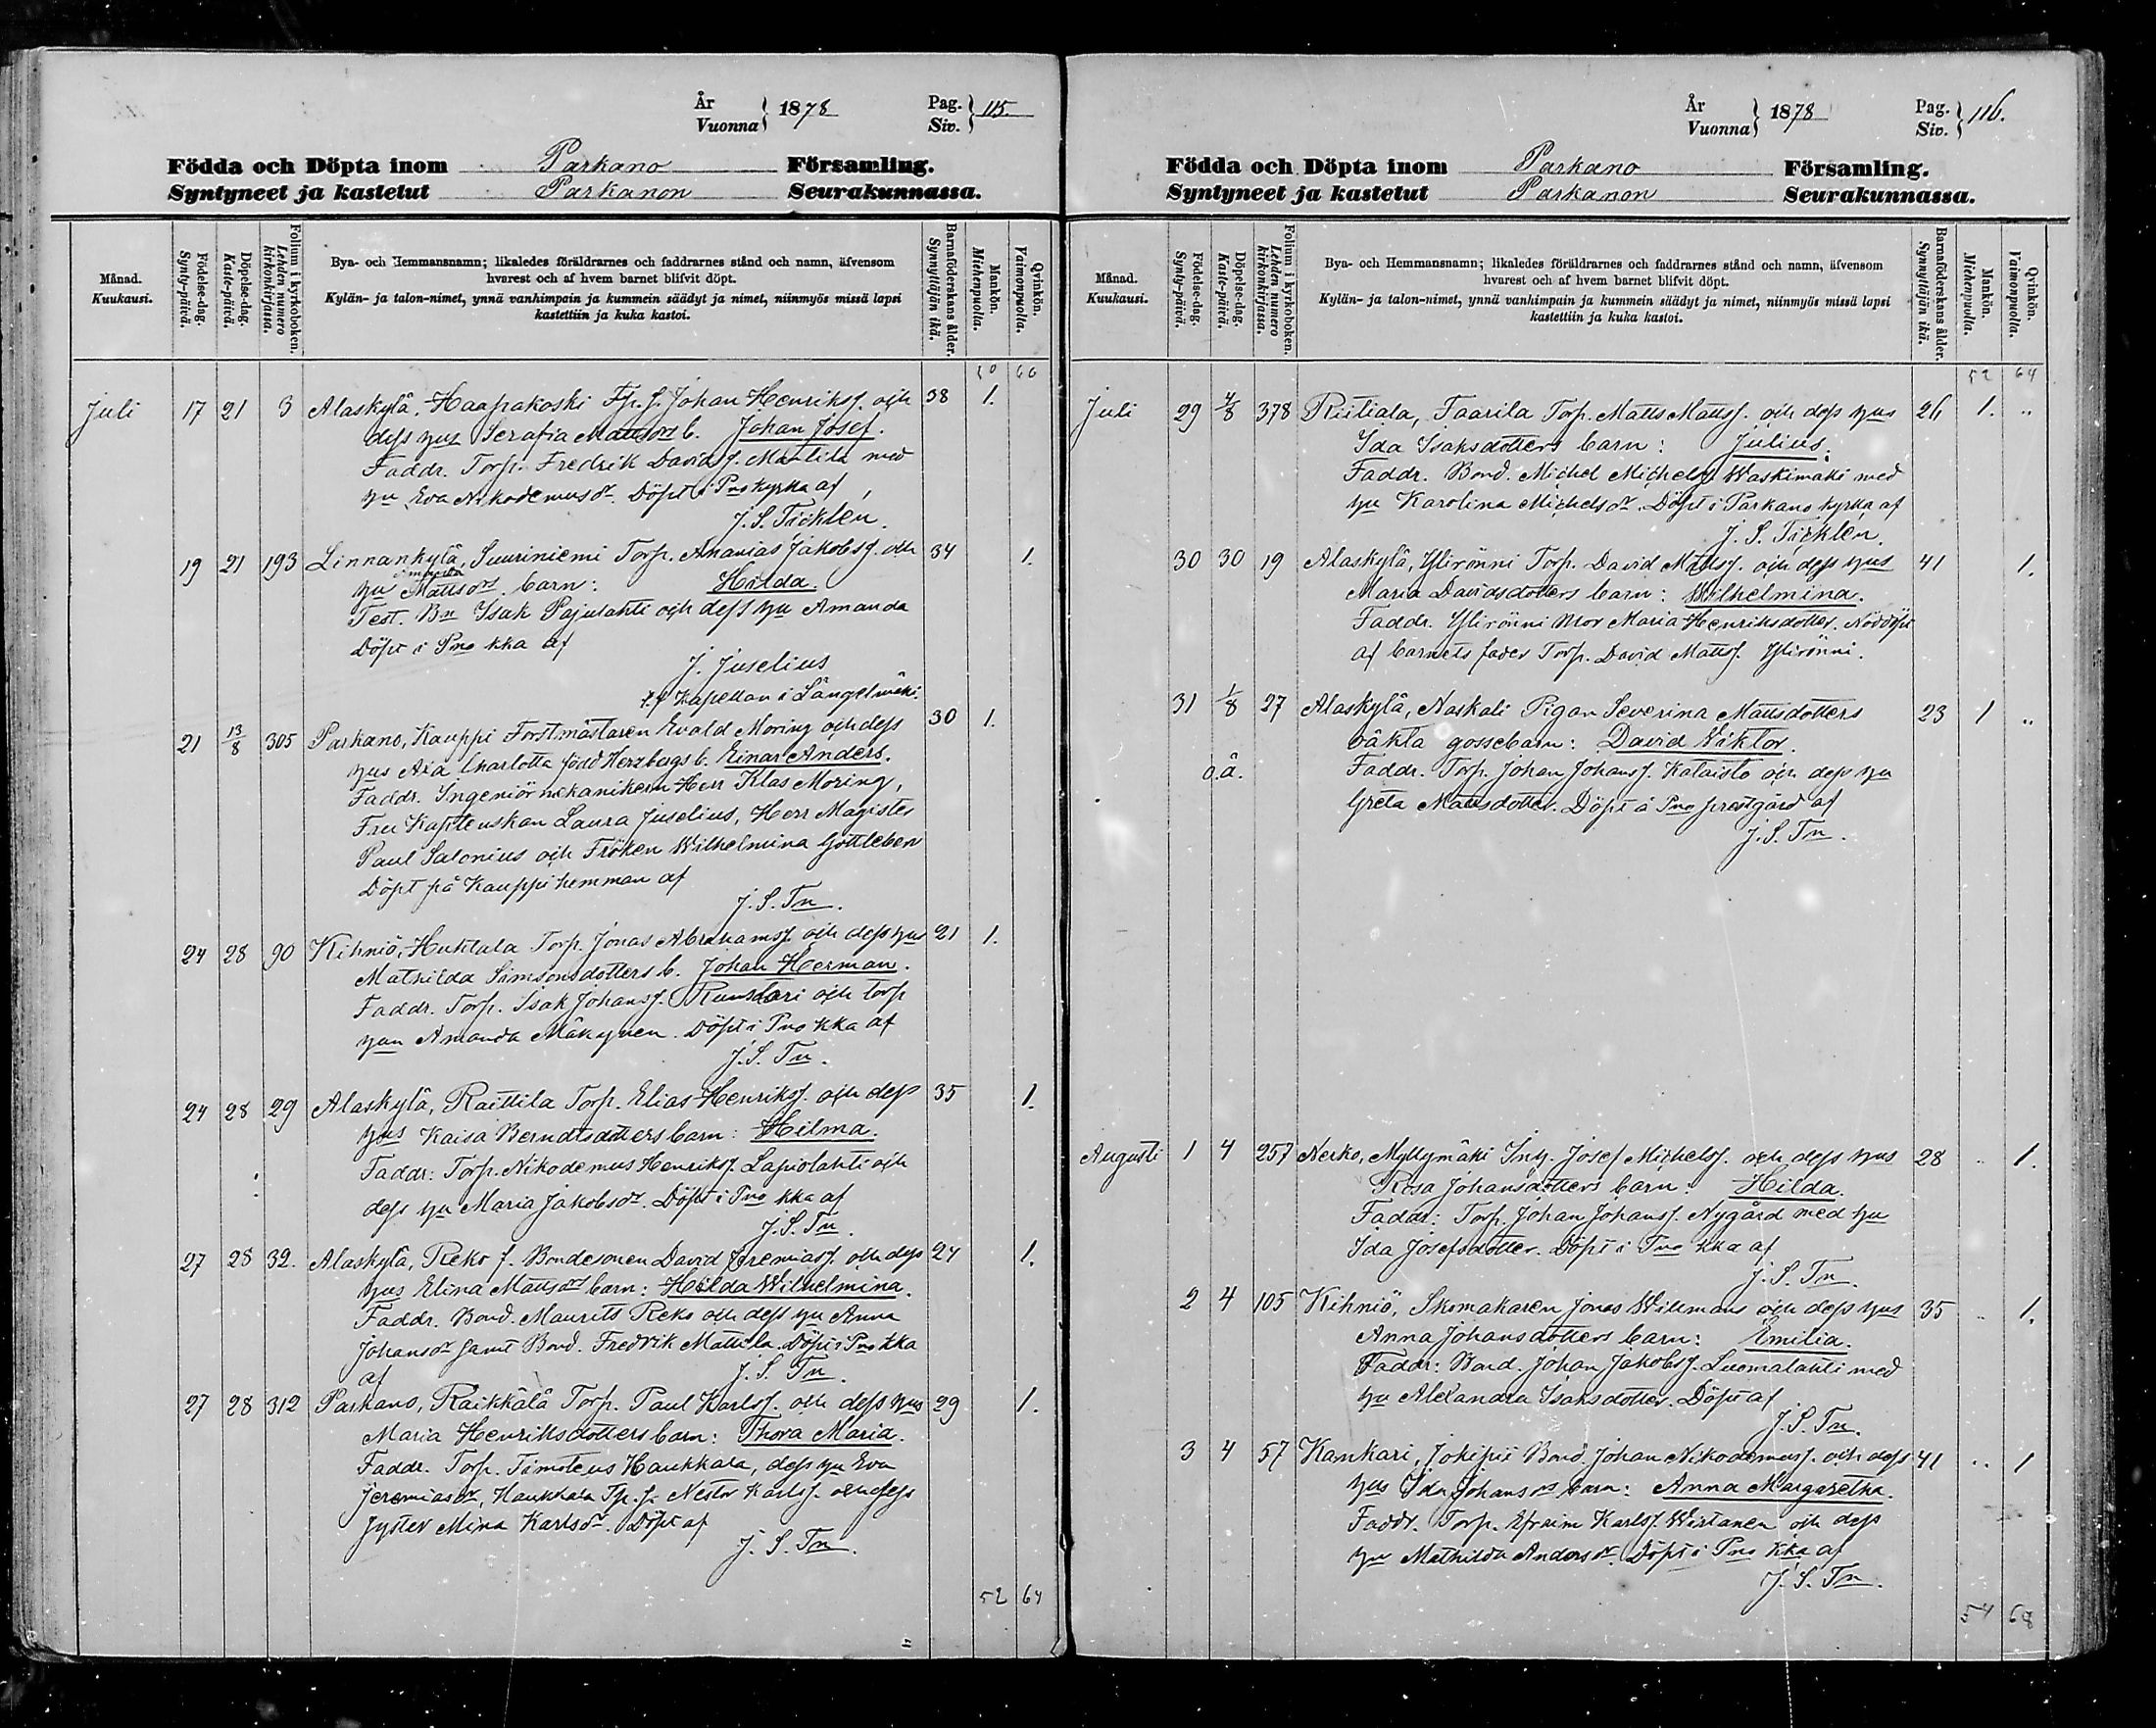 År
Vuonna } 1878 Pag.
Siv. } 115.
Födda och Döpta inom Parkano Församling.
Syntyneet ja kastetut Parkanon Seurakunnassa.
Månad.
Kuukausi.
Födelse-dag.
Synty-päivä.
Döpelse-dag.
Kaste-päivä.
Folium i kyrkoboken.
Lehden numero
kirkonkirjassa.
Bya- och Hemmansnamn; likaledes föräldrarnes och faddrarnes stånd och namn, äfvensom
hvarest och af hvem barnet blifvit döpt.
Kylän- ja talon-nimet, ynnä vanhimpain ja kummein säädyt ja nimet, niinmyös missä lapsi
kastettiin ja kuka kastoi.
Barnaföderskans ålder.
Synnyttäjän ikä.
Mankön.
Miehenpuolia.
Qvinkön.
Vaimonpuolia.
50 60
Juli 17 21 3 Alaskylä, Haapakoski Tp. s. Johan Henrikss. och 38 1.
dess hus Serafia Mattsdrs b. Johan Josef.
Faddr. Torp. Fredrik Davids. Mattila med
hu Eva Nikodemusdr. Döpt i Pno kyrka af
J. S. Ticklen.
19 21 193 Linnankylä, Suuriniemi Torp. Ananias Jakobss. och 34 1.
hu Mattsdrs barn: Hilda.
Test. Bn Isak Pajulahti och dess hu Amanda
Döpt i Pno kka af
J. Juselius
t.f. Kapellan i Längelmäki.
21 13/8 305 Parkano, Kauppi Forstmästaren Evald Moring och dess 30 1.
hus Ada Charlotta född Herzbergs b. Einar Anders.
Faddr. Ingeniör mekanikern Herr Klas Moring,
Fru Kaptenskan Laura Juselius, Herr Magister
Paul Salonius och Fröken Wilhelmina Gottleben
Döpt på Kauppi hemman af
J. S. Tn.
24 28 90 Kihniö, Huhtala Torp. Jonas Abrahamss. och dess hus 21 1.
Mathilda Simsonsdotters b. Johan Herman.
Faddr. Torp. Isak Johanss. Ruuskari och torp
hun Amanda Mäkynen. Döpt i Pno kka af
J. S. Tn.
24 28 29 Alaskylä, Raittila Torp. Elias Henrikss. och dess 35 1.
hus Kaisa Berndtsdotters barn: Hilma.
Faddr: Torp. Nikodemus Henrikss. Lapiolahti och
dess hu Maria Jakobsdr. Döpt i Pno kka af
J. S. Tn.
27 28 32. Alaskylä, Reko s. Bondesonen David Jeremiass. och dess 24 1.
hus Elina Mattsdrs barn: Hilda Wilhelmina.
Faddr. Bond. Maurits Reko och dess hu Anna
Johansdr samt Bond. Fredrik Mattila. Döpt i Pno kka
af J. S. Tn.
27 28 312 Parkano, Raikkälä Torp. Paul Karlss. och dess hus 29 1.
Maria Henriksdotters barn: Thora Maria.
Faddr. Torp. Timoteus Haukkala, dess hu Eva
Jeremiasdr, Haukkala Tp. s. Nestor Karlss. och dess
syster Mina Karlsdr. Döpt af
J. S. Tn.
52 64
År
Vuonna } 1878 Pag.
Siv. } 116.
Födda och Döpta inom Parkano Församling.
Syntyneet ja kastetut Parkanon Seurakunnassa.
Månad.
Kuukausi.
Födelse-dag.
Synty-päivä.
Döpelse-dag.
Kaste-päivä.
Folium i kyrkoboken.
Lehden numero
kirkonkirjassa.
Bya- och Hemmansnamn; likaledes föräldrarnes och faddrarnes stånd och namn, äfvensom
hvarest och af hvem barnet blifvit döpt.
Kylän- ja talon-nimet, ynnä vanhimpain ja kummein säädyt ja nimet, niinmyös missä lapsi
kastettiin ja kuka kastoi.
Barnaföderskans ålder.
Synnyttäjän ikä.
Mankön.
Miehenpuolia.
Qvinkön.
Vaimonpuolia.
52 64
Juli 29 4/8 378 Riitiala, Taarila Torp. Matts Mattss. och dess hus 26 1. ..
Ida Isaksdotters barn: Julius.
Faddr. Bond. Michel Michelss. Waskimäki med
hu Karolina Michelsdr. Döpt i Parkano kyrka af
J. S. Ticklen.
30 30 19 Alaskylä, Ylirönni Torp. David Mattss. och dess hus 41 1.
Maria Davidsdotters barn: Wilhelmina.
Faddr. Ylirönni Mor Maria Henriksdotter. Nöddöpt
af barnets fader Torp. David Mattss. Ylirönni.
31 1/8 27 Alaskylä, Naskali Pigan Severina Mattsdotters 23 1 ..
oäkta gossebarn: David Viktor.
o.ä. Faddr. Torp. Johan Johanss. Kataisto och dess hu
Greta Mattsdotter. Döpt å Pno prestgård af
J. S. Tn.
Augusti 1 4 257 Nerko, Myllymäki Inh. Josef Michelss. och dess hus 28 .. 1.
Rosa Johansdotters barn: Hilda.
Faddr: Torp. Johan Johanss. Nygård med hu
Ida Josefsdotter. Döpt i Pno kka af
J. S. Tn.
2 4 105 Kihniö, Skomakaren Jonas Willmans och dess hus 35 .. 1.
Anna Johansdotters barn: Emilia.
Faddr: Bond. Johan Jakobss. Luomalahti med
hu Alexandra Isaksdotter. Döpt af
J. S. Tn.
3 4 57 Kankari, Jokipii Bond. Johan Nikodemuss. och dess 41 .. 1
hus Ida Johansdrs barn: Anna Margaretha.
Faddr. Torp. Efraim Karlss. Wirtanen och dess
hu Mathilda Andersdr. Döpt i Pno kka af
J. S. Tn.
54 68